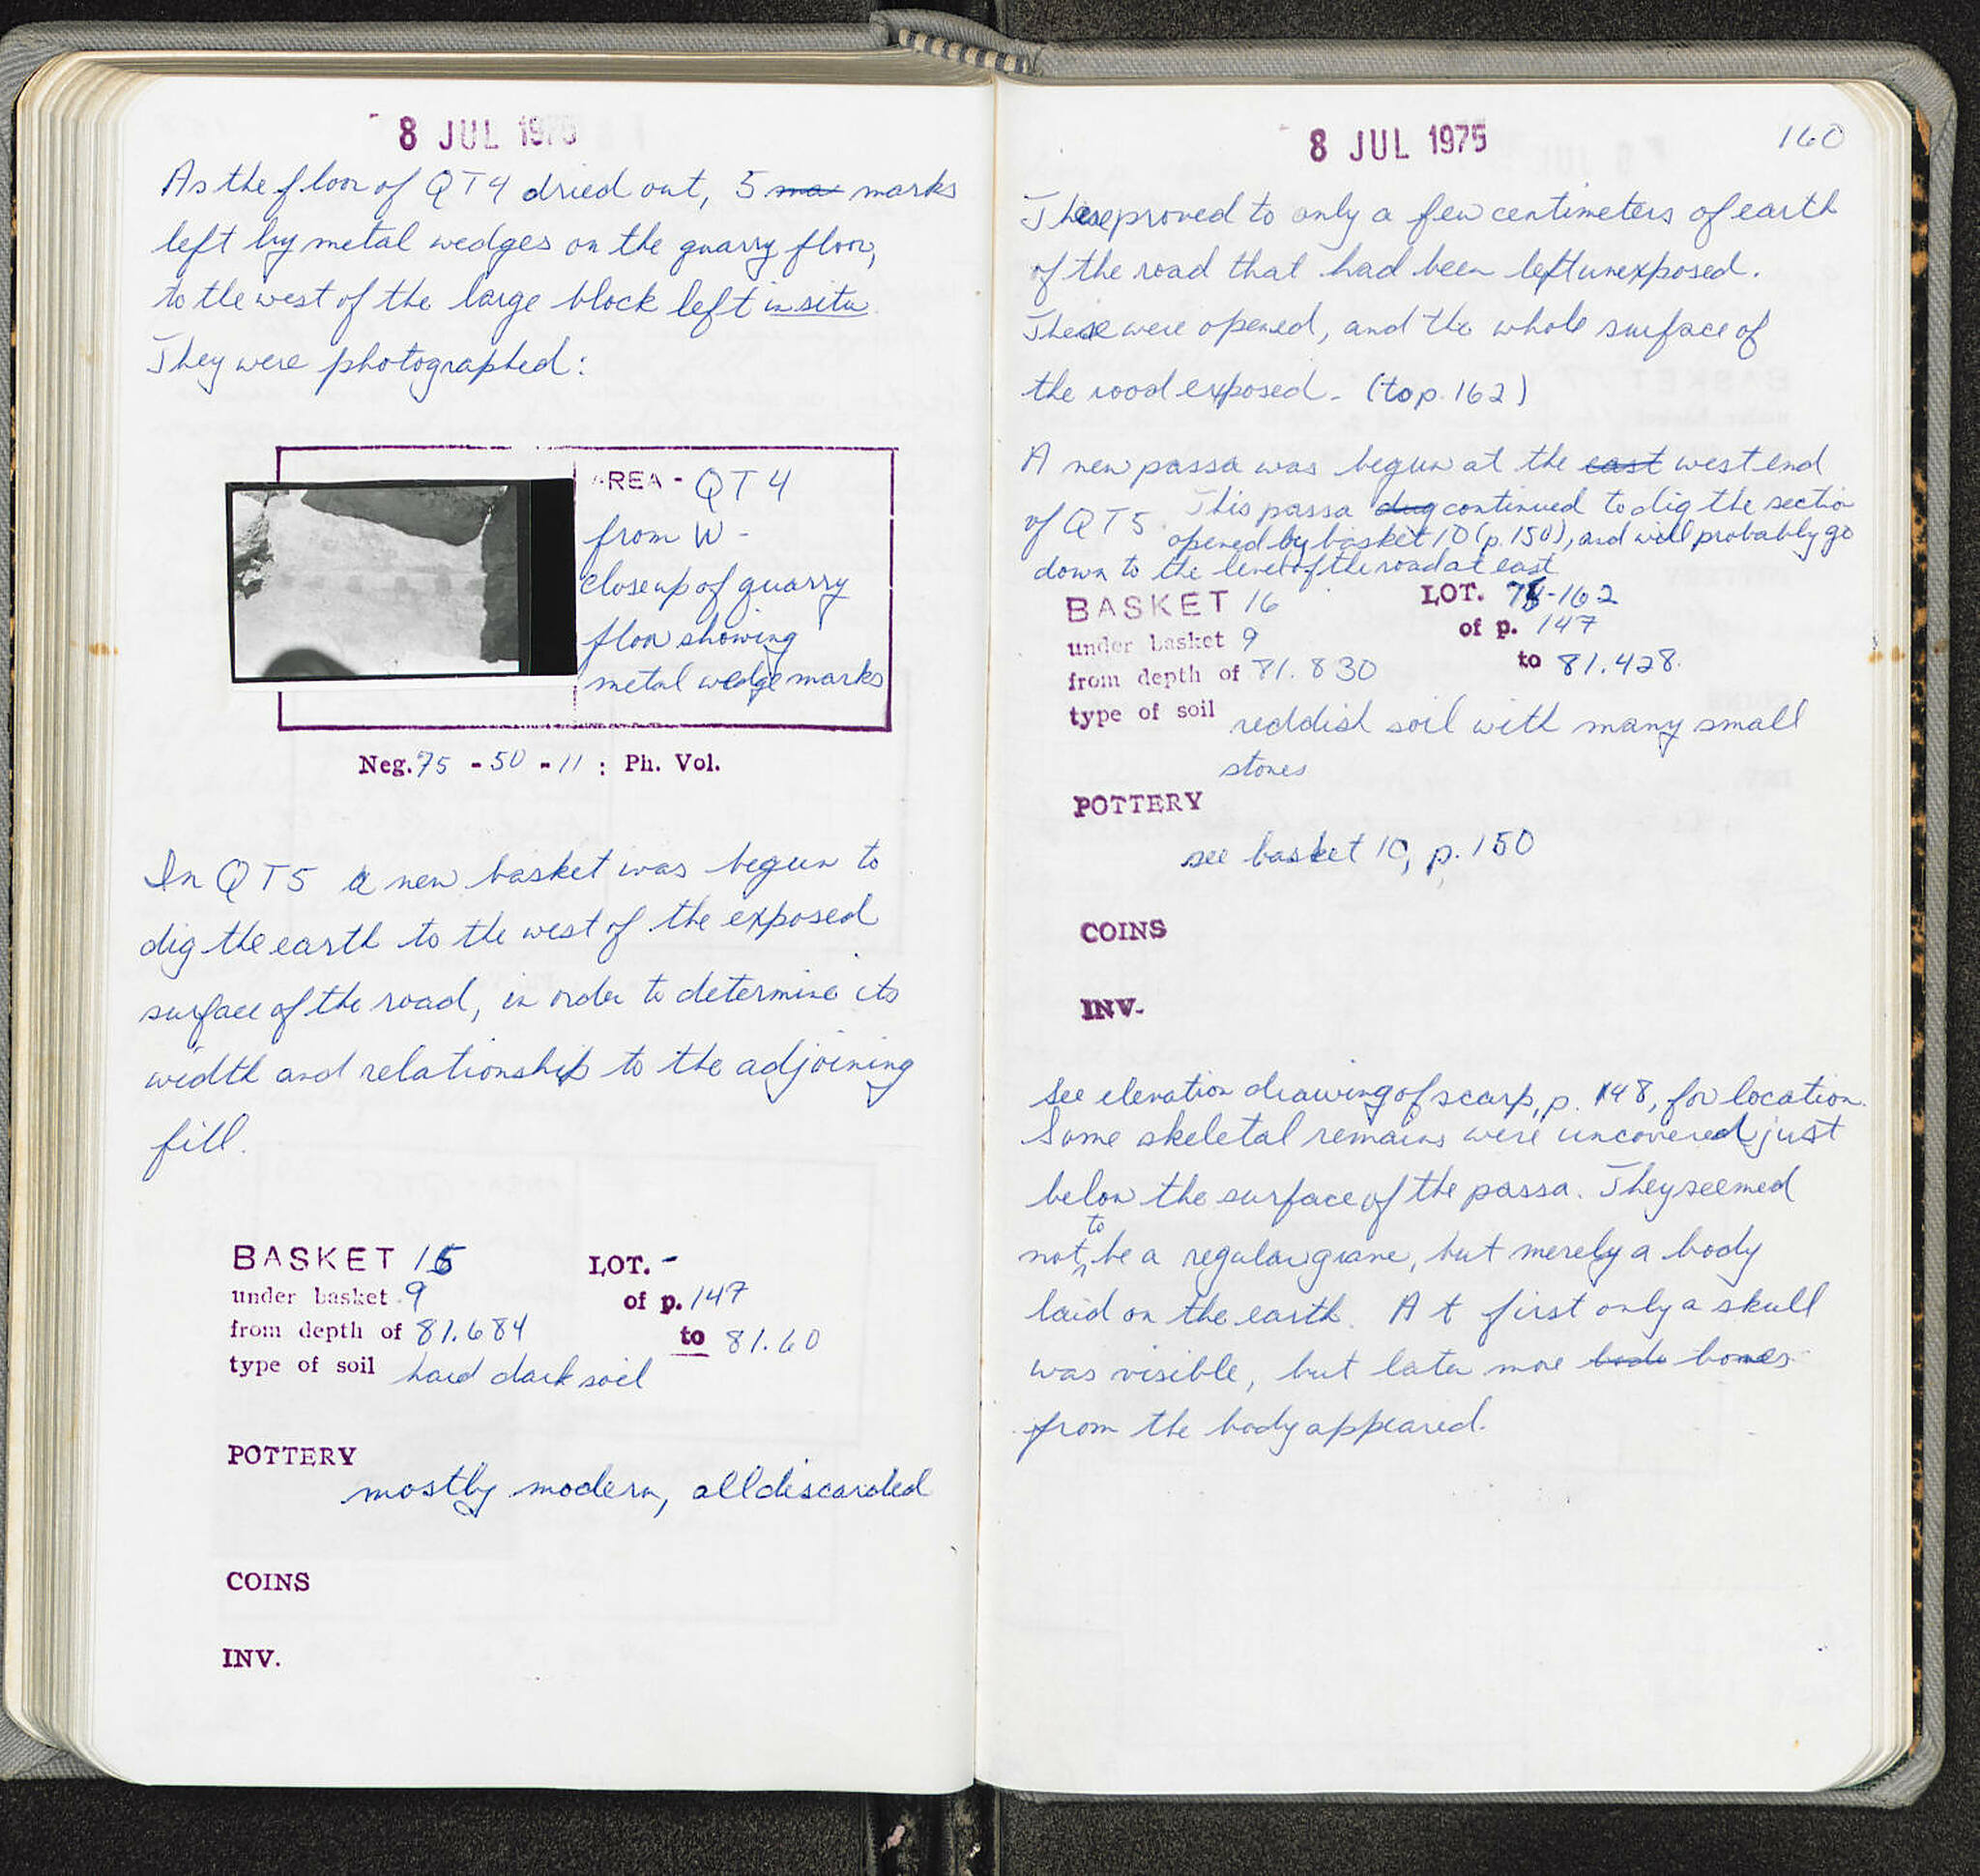 8 JUL 1975
As the floor of QT4 dried out, 5 ma marks
left by metal wedges on the quarry floor,
to the west of the large block left in situ.
They were photographed:
AREA - QT4
from W -
closeup of quarry
floor showing
metal wedge marks
Neg. 75 - 50 - 11 : Ph. Vol.
In QT5 a new basket was begun to
dig the earth to the west of the exposed
surface of the road, in order to determine its
width and relationship to the adjoining
fill.
BASKET 15 LOT. -
under basket 9 of p. 147
from depth of 81.684 to 81.60
type of soil hard dark soil
POTTERY
mostly modern, all discarded
COINS
INV.
8 JUL 1975 160
These proved to only a few centimeters of earth
of the road that had been left unexposed.
These were opened, and the whole surface of
the road exposed. (to p. 162)
A new passa was begun at the east west end
of QT5. This passa dug continued to dig the section
opened by basket 10 (p. 150), and will probably go
down to the level of the road at east
BASKET 16 LOT. 75-162
under basket 9 of p. 147
from depth of 81.830 to 81.428.
type of soil reddish soil with many small
stones
POTTERY
see basket 10, p. 150
COINS
INV.
See elevation drawing of scarp, p. 148, for location.
Some skeletal remains were uncovered just
below the surface of the passa. They seemed
not to be a regular grave, but merely a body
laid on the earth. At first only a skull
was visible, but later more bones
from the body appeared.